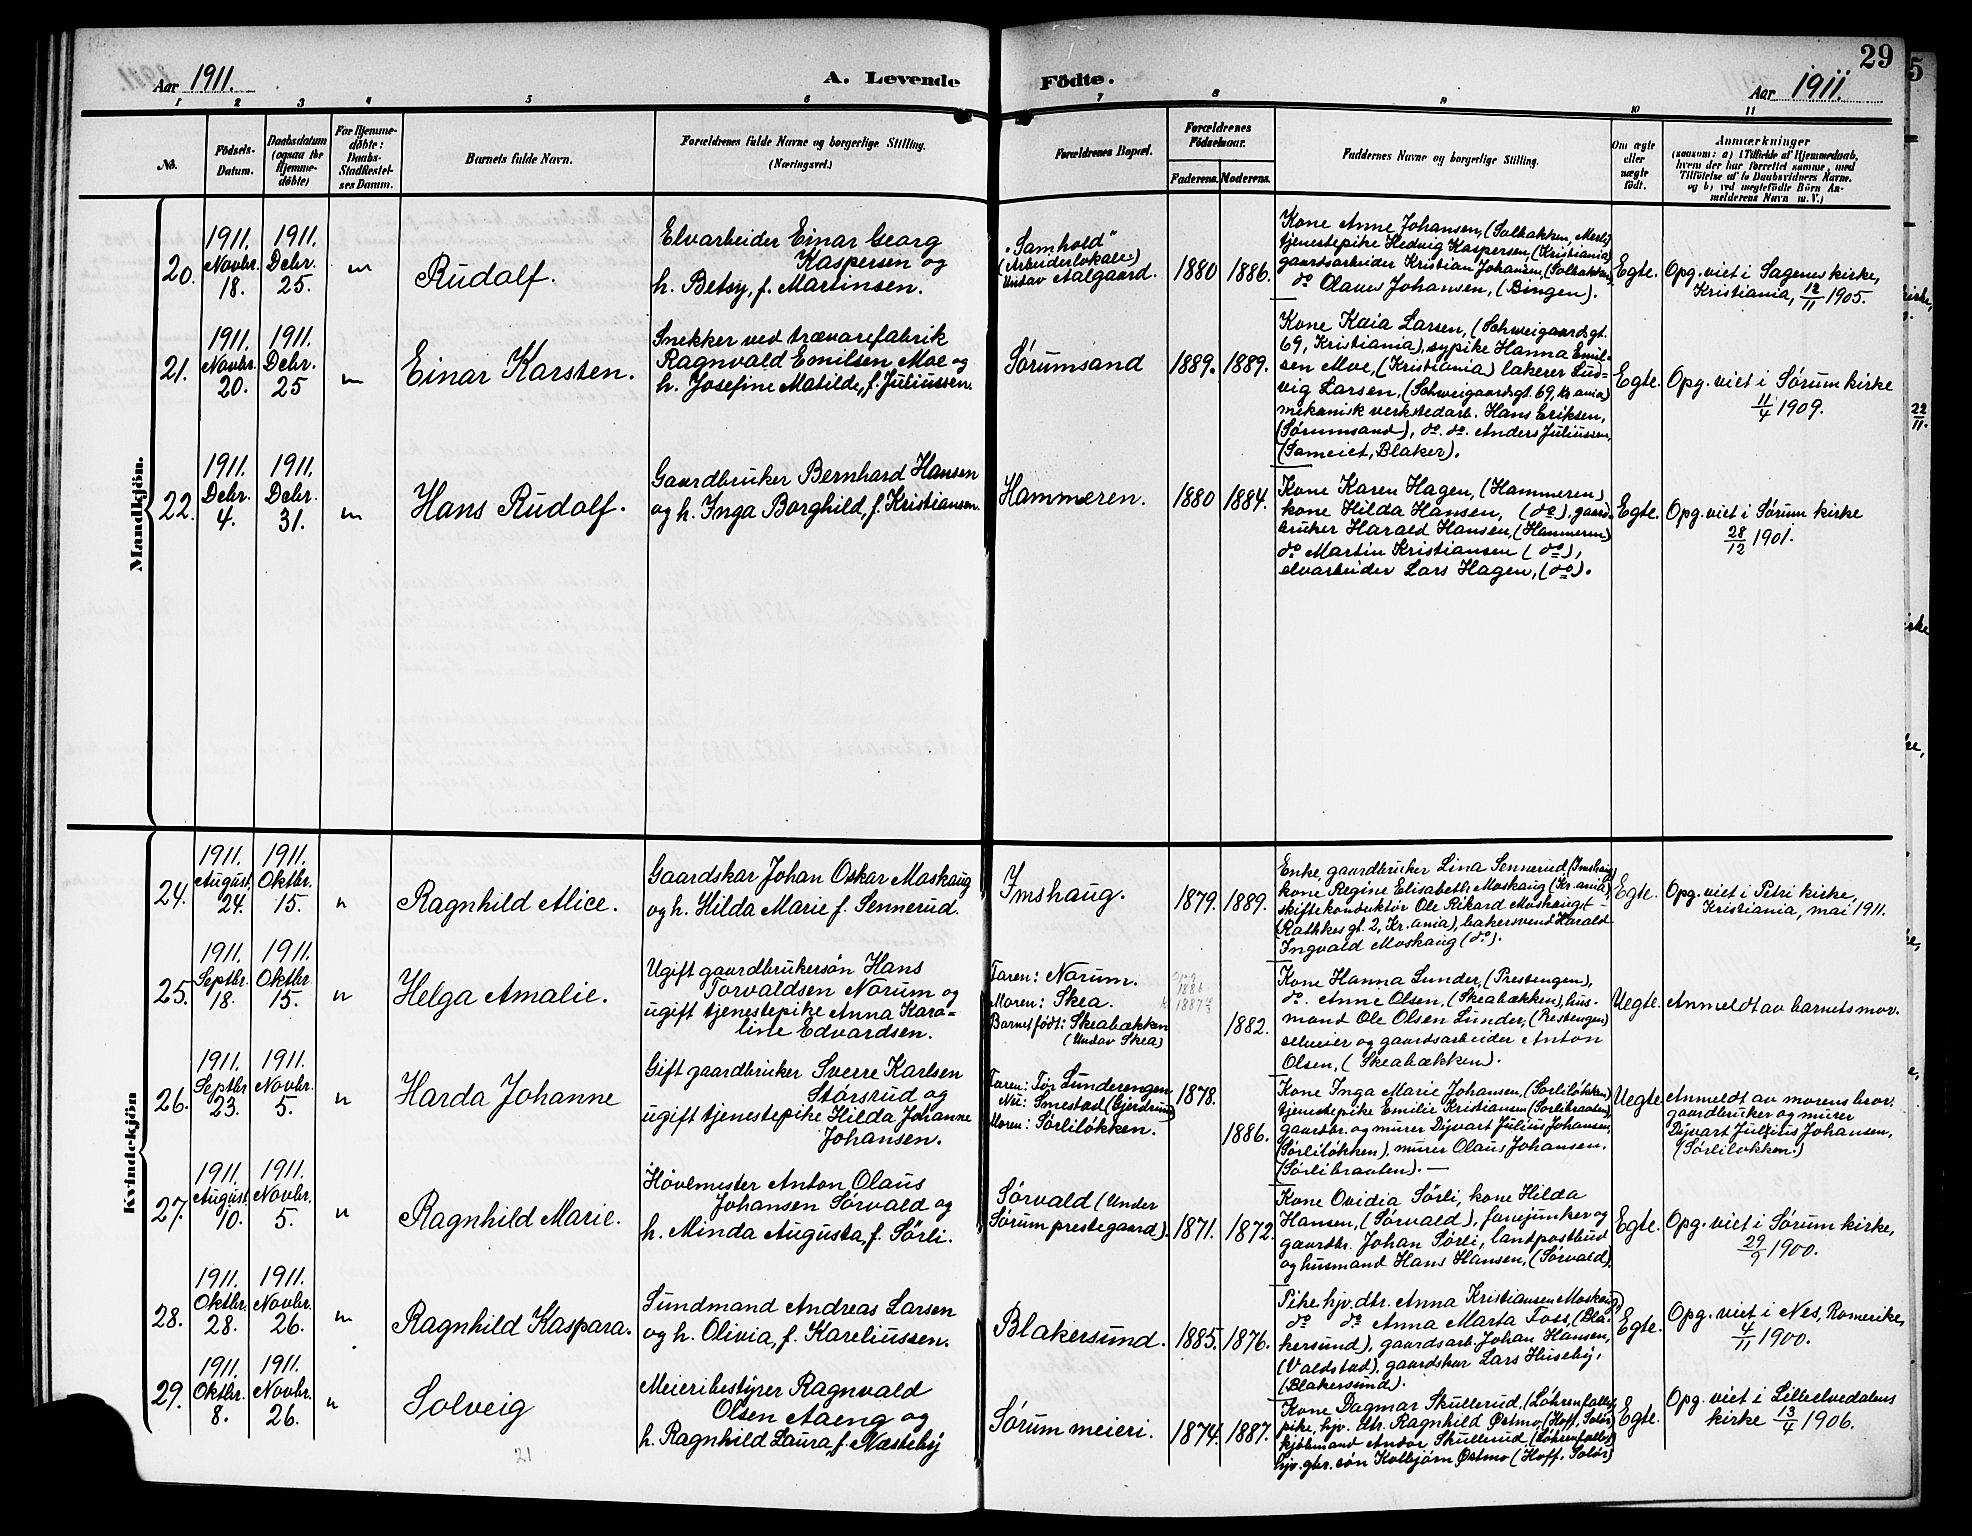 29
Aar 1911.
A. Levende
Fødte.
Aar 1911.
1 2 3 4 5 6 7 8 9 10 11
No.
Fødsels-
Datum.
Daabsdatum
(ogsaa for
Hjemme-
døbte)
For Hjemme-
døbte:
Daabs-
Stadfæstel-
ses Datum.
Barnets fulde Navn.
Forældrenes fulde Navne og borgerlige Stilling.
(Næringsvei.)
Forældrenes Bopæl.
Forældrenes
Fødselsaar.
Faderens. Moderens.
Faddernes Navne og borgerlige Stilling.
Om ægte
eller
uægte
født.
Anmærkninger
(saasom: a) i Tilfælde af Hjemmedaab,
hvem der har forrettet samme, med
Tilføielse af to Daabsvidners Navne.
og b) ved uegtefødte Børn An-
melderens Navn m.V.)
Mandkjön.
20.
1911.
Novbr.
18.
1911.
Debr.
25.
"
Rudolf.
Elvarbeider Einar Georg
Kaspersen og
h. Betsy, f. Martinsen.
"Samhold"
(Arbeiderlokale)
Undav Aalgaard.
1880
1886.
Kone Anne Johansen, (Solbakken, Merli)
tjenestepike Hedvig Kaspersen, (Kristiania)
gaardsarbeider Kristian Johansen, (Solbakken)
do Olaves Johansen, (Bingen).
Egte.
Opg. viet i Sagenes kirke,
Kristiania, 12/11 1905.
21.
1911.
Novbr.
20.
1911.
Debr.
25
"
Einar Karsten.
Snekker ved trævarefabrik
Ragnvald Emilsen Moe og
h. Josefine Matilde, f. Juliussen.
Sørumsand
1889.
1889.
Kone Kaia Larsen, (Schweigaardsgt.
69, Kristiania), sypike Hanna Emil-
sen Moe, (Kristiania) lakerer Lud-
vig Larsen, (Schweigaardsgt. 69, Kr.ania)
mekanisk verkstedarb. Hans Eriksen,
(Sørumsand), do. do. Anders Juliussen,
(Sameiet, Blaker).
Egte.
Opg. viet i Sørum kirke
11/4 1909.
22.
1911.
Debr.
4.
1911.
Debr.
31.
"
Hans Rudolf.
Gaardbruker Bernhard Hansen
og h. Inga Borghild, f. Kristiansen.
Hammeren.
1880
1884.
Kone Karen Hagen, (Hammeren)
kone Hilda Hansen, (do), gaard-
bruker Harald Hansen, (Hammeren)
do Martin Kristiansen (do),
elvarbeider Lars Hagen, (do).
Egte.
Opg. viet i Sørum kirke
28/12 1901.
Kvindekjön
24.
1911.
August.
24.
1911.
Oktbr.
15.
"
Ragnhild Alice.
Gaardskar Johan Oskar Moskaug
og h. Hilda Marie f. Sennerud.
Imshaug.
1879.
1889.
Enke, gaardbruker Lina Sennerud (Imshaug)
kone Regine Elisabeth Moskaug (Kr.ania)
skiftekonduktør Ole Rikard Moskaug
(Rathkesgt. 2, Kr.ania), bakersvend Harald
Ingvald Moskaug (do).
Egte.
Opg. viet i Petri kirke,
Kristiania, mai 1911.
25.
1911.
Septbr.
18.
1911.
Oktbr.
15.
"
Helga Amalie.
Ugift gaardbrukersøn Hans
Torvaldsen Norum og
ugift tjenestepike Anna Karo-
line Edvardsen.
Faren: Norum.
Moren: Skea.
Barnet født: Skeabækken
(Undav Skea)
1882.
Kone Hanna Sunder, (Prestengen),
do. Anne Olsen, (Skeabækken), hus-
mand Ole Olsen Sunder, (Prestengen)
selveier og gaardsarbeider Anton
Olsen, (Skeabækken).
Uegte.
Anmeldt av barnets mor.
26.
1911.
Septbr
23.
1911.
Novbr.
5.
"
Harda Johanne
Gift gaardbruker Sverre Karlsen
Størsrud og
ugift tjenestepike Hilda Johanne
Johansen.
Faren: Før Sunderengen
Nu: Smestad (Gjerdrum)
Moren: Sørliløkken.
1878.
1886.
Kone Inga Marie Johansen, (Sørliløkken)
tjenestepike Emilie Kristiansen (Sørlibraaten),
gaardbr. og murer Dyvart Julius Johansen,
(Sørliløkken), murer Olaus Johansen.
(Sørlibraaten). —
Uegte
Anmeldt av morens bror,
gaardbruker og murer
Dyvart Julius Johansen,
(Sørliløkken.)
27.
1911.
August.
10.
1911.
Novbr.
5.
"
Ragnhild Marie.
Hovemester Anton Olaus
Johansen Sørvald og
h. Minda Augusta, f. Sørli.
Sørvald (Under
Sørum prestegaard).
1871.
1872
Kone Ovidia Sørli, kone Hilda
Hansen, (Sørvald), fanejunker og
gaardbr. Johan Sørli, landpostbud
og husmand Hans Hansen, (Sørvald).
Egte.
Opg. viet i Sørum kirke,
29/9 1900.
28.
1911.
Oktbr.
28.
1911.
Novbr.
26.
"
Ragnhild Kaspara.
Sundmand Andreas Larsen
og h. Olivia, f. Kareliussen.
Blakersund.
1885.
1876.
Pike, hjv. dtr. Anna Kristiansen Moskaug,
do do Anna Marta Foss, (Bla-
kersund), gaardsarb. Johan Hansen,
(Valdstad), gaardskar Lars Huseby,
(Blakersund).
Egte.
Opg. viet i Nes, Romerike,
4/11 1900.
29.
1911.
Oktbr.
8.
1911.
Novbr.
26.
"
Solveig
Meieribestyrer Ragnvald
Olsen Aaeng og
h. Ragnhild Laura f. Næsteby
Sørum meieri.
1874.
1887.
Kone Dagmar Skullerud, (Løhrenfallet)
pike, hjv. dtr. Ragnhild Østmo, (Hoff, Solør)
kjøbmand Andor Skullerud (Løhrenfallet)
hjv. gbr. søn Kolbjørn Østmo (Hoff, Solør)
Egte.
Opg. viet i Lilleelvedalens
kirke 13/4 1906.
21